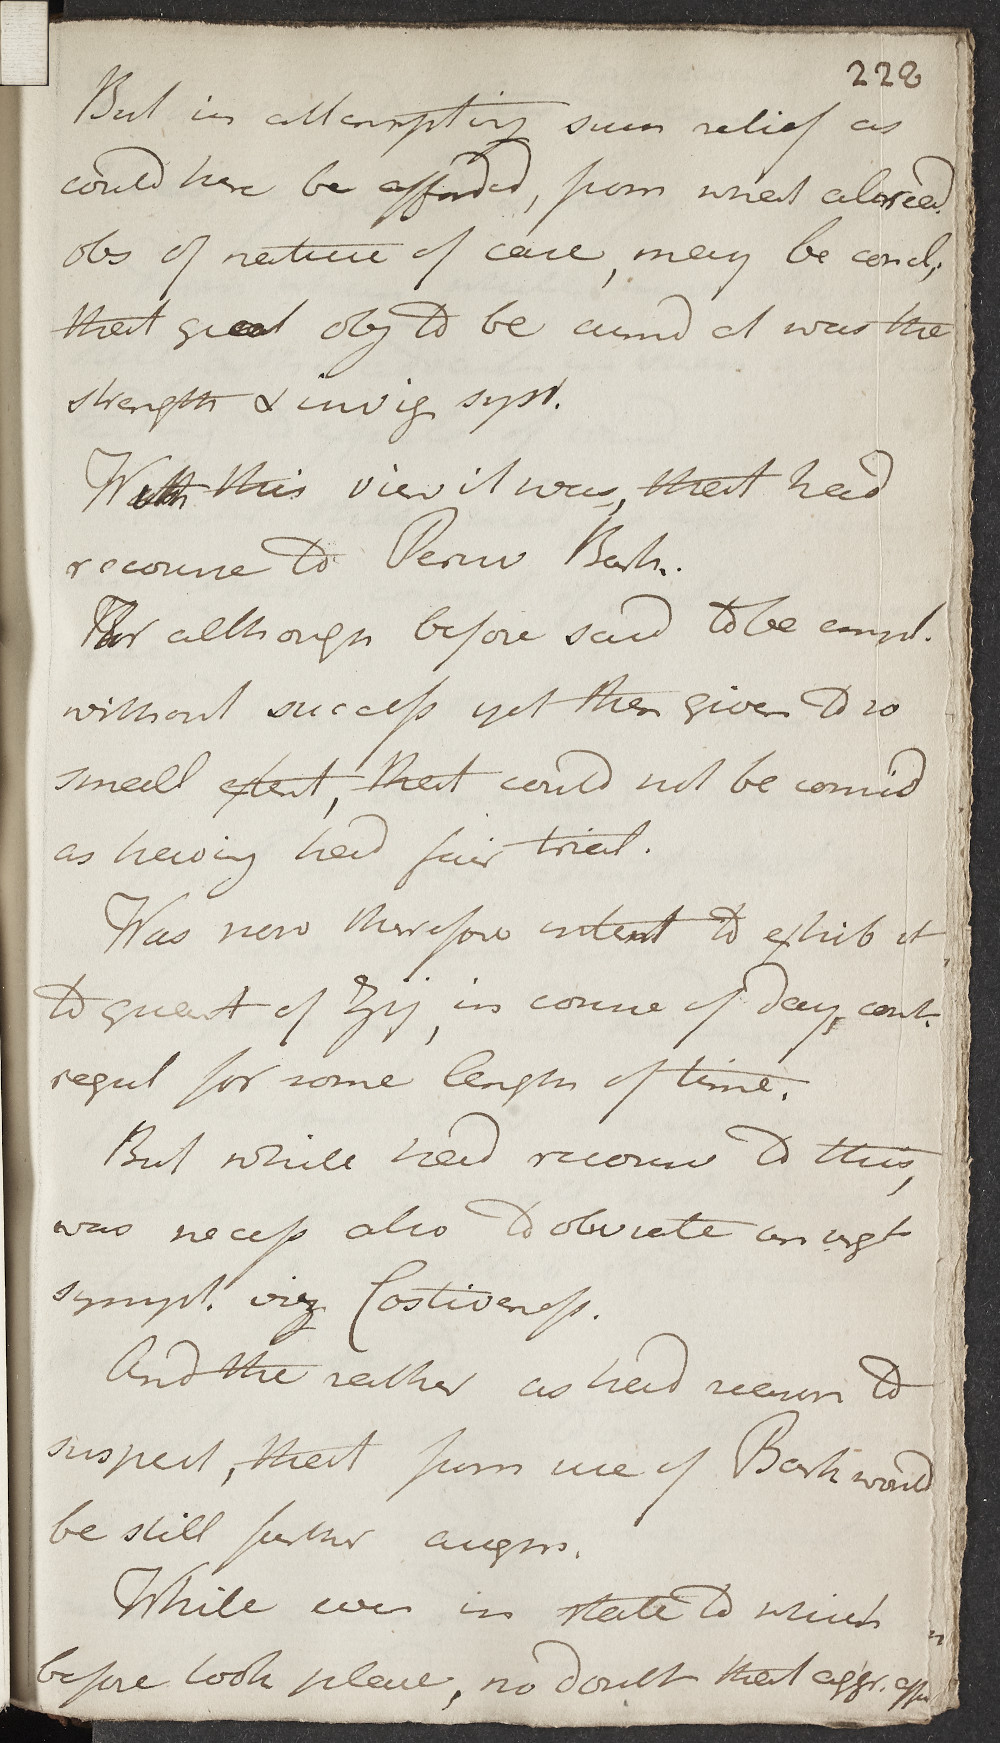 228
But in attempting such relief as
could here be afforded, from what already
obs of nature of case, may be concl,
that great obj to be aimd at was the
strength & invig syst.
With this view it was, that had
recourse to Peruv Bark.
For although before said to be empl.
without success yet then given to so
small extent, that could not be consid
as having had fair trial.
Was now therefore intent to exhib it
to quant of ʒij, in course of day, cont.
regul for some length of time.
But while had recourse to this,
was necess also to obviate an urgt
sympt. viz Costiveness.
And the rather as had reason to
suspect, that from use of Bark would
be still further augm.
While even in state to which
before took place, no doubt that aggr.